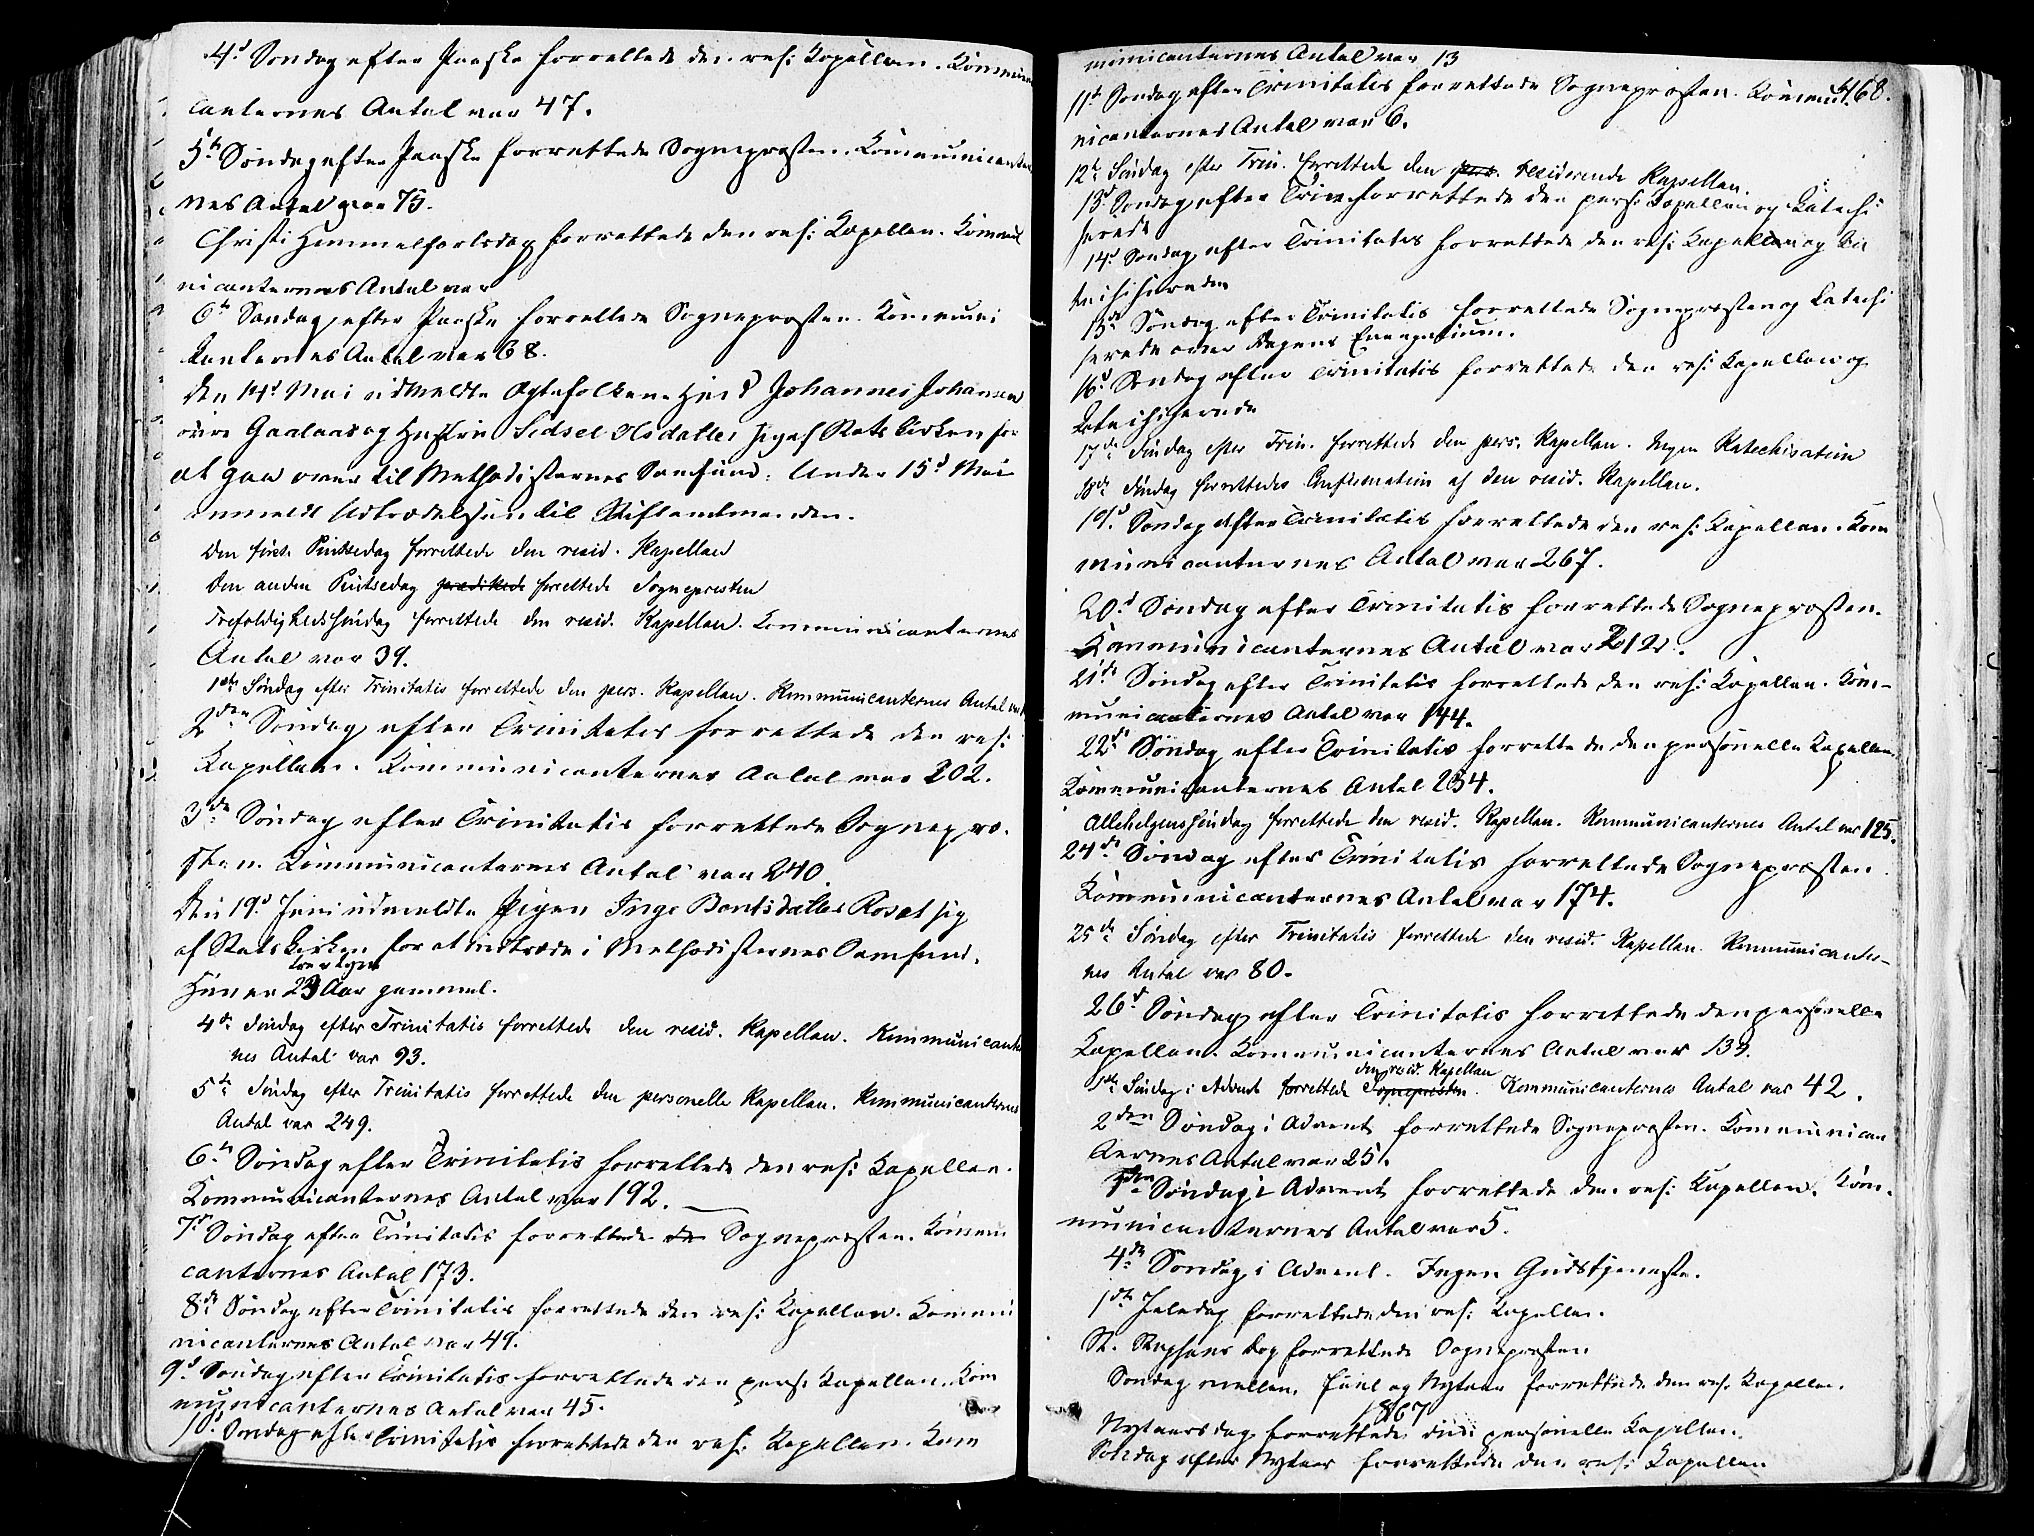 4d Søndag efter Paaske forrettede den res: Kapellan. Kommuni
canternes Antal var 47.
5te Søndag efter Paaske forrettede Sognepræsten. Kommunicanter
nes Antal var 75.
Christi Himmelfartsdag forrettede den res: Kapellan. Kommu
nicanternes Antal var
6te Søndag efter Paaske forrettede Sognepræsten. Kommuni
kanternes Antal var 68.
Den 14d Mai udmeldte Ægtefolkene Johannes Johansen
øvre Gaalaas og Hustru Sidsel Olsdatter sig af Statskirken for
at gaa over til Methodisternes Samfund. Under 15d Mai
anmeldt Udtrædelsen til Stiftamtmanden.
Den første Pintsedag forrettede den resid. Kapellan
Den anden Pintsedag prædikede forrettede Sognepresten
Trefoldighedssøndag forrettede den resid. Kapellan. Kommunicanternes
Antal var 39.
1ste Søndag efter Trinitatis forrettede den pers. Kapellan. Kommunicanternes Antal var
2den Søndag efter Trinitatis forrettede den res:
Kapellan. Kommunicanternes Antal var 202.
3de Søndag efter Trinitatis forrettede Sognepræ-
sten. Kommunicanternes Antal var 240.
Den 19d Juni udmeldte Pigen Inge Bentsdatter Roset sig
af Statskirken for at indtræde i Methodisternes Samfund.
Hun er 23 Aar gammel.
4de Søndag efter Trinitatis forrettede den resid. Kapellan. Kommunicanter
nes Antal var 93.
5te Søndag efter Trinitatis forrettede den personelle Kapellan. Kommunicanternes
Antal var 249.
6te Søndag efter Trinitatis forrettede den res: Kapellan.
Kommunicanternes Antal var 192.
7d Søndag efter Trinitatis forrettede den Sognepræsten. Kommu
canternes Antal 173.
8de Søndag efter Trinitatis forrettede den res: Kapellan. Kommu
nicanternes Antal var 49.
9d Søndag efter Trinitatis forrettede den pers: Kapellan. Kom
municanternes Antal var 45.
10d Søndag efter Trinitatis forrettede den res: Kapellan. Kom
municanternes Antal var 13
168.
11te Søndag efter Trinitatis forrettede Sognepræsten. Kommu
nicanternes Antal var 6.
12te Søndag efter Trin. forrettede den pers. residerende Kapellan.
13d Søndag efter Trin forrettede den pers: Kapellan og Katechi
serede
14d Søndag efter Trinitatis forrettede den res: Kapellan og Ka
techiserede
15de Søndag efter Trinitatis forrettede Sognepræsten og Catechi
serede over Dagens Evangelium.
16d Søndag efter Trinitatis forrettede den res: Kapellan og
Katechiserede
17de Søndag efter Trin. forrettede den pers. Kapellan. Ingen Katechisation
18de Søndag forrettedes Confirmation af den resid. Kapellan.
19d Søndag efter Trinitatis forrettede den res: Kapellan. Kom
municanternes Antal var 267.
20d Søndag efter Trinitatis forrettede Sognepræsten.
Kommunicanternes Antal var 212.
21de Søndag efter Trinitatis forrettede den res: Kapellan. Kom-
municanternes Antal var 144.
22d Søndag efter Trinitatis forrettede den personelle Kapellan.
Kommunicanternes Antal 234.
Allehelgenssøndag forrettede den resid. Kapellan. Kommunicanternes Antal var 125.
24de Søndag efter Trinitatis forrettede Sognepræsten
Kommunicanternes Antal var 174.
25de Søndag efter Trinitatis forrettede den resid. Kapellan. Kommunicanter-
nes Antal var 80.
26d Søndag efter Trinitatis forrettede den personelle
Kapellan. Kommunicanternes Antal var 133.
den resid. Kapellan
1ste Søndag i Advent forrettede Sognepresten. Kommunicanternes Antal var 42.
2den Søndag i Advent forrettede Sognepræsten. Kommunican
ternes Antal var 25.
Søndag i Advent forrettede den res: Kapellan. Kom-
municanternes Antal var 5.
4de Søndag i Advent. Ingen Gudstjeneste.
1ste Juledag forrettede den res: Kapellan.
St. Stephans Dag forrettede Sognepræsten
Søndag mellem Juul og Nytaar forrettede den res: Kapellan.
1867
Nytaarsdag forrettede den personelle Kapellan.
Søndag efter Nytaar forrettede den res: Kapellan